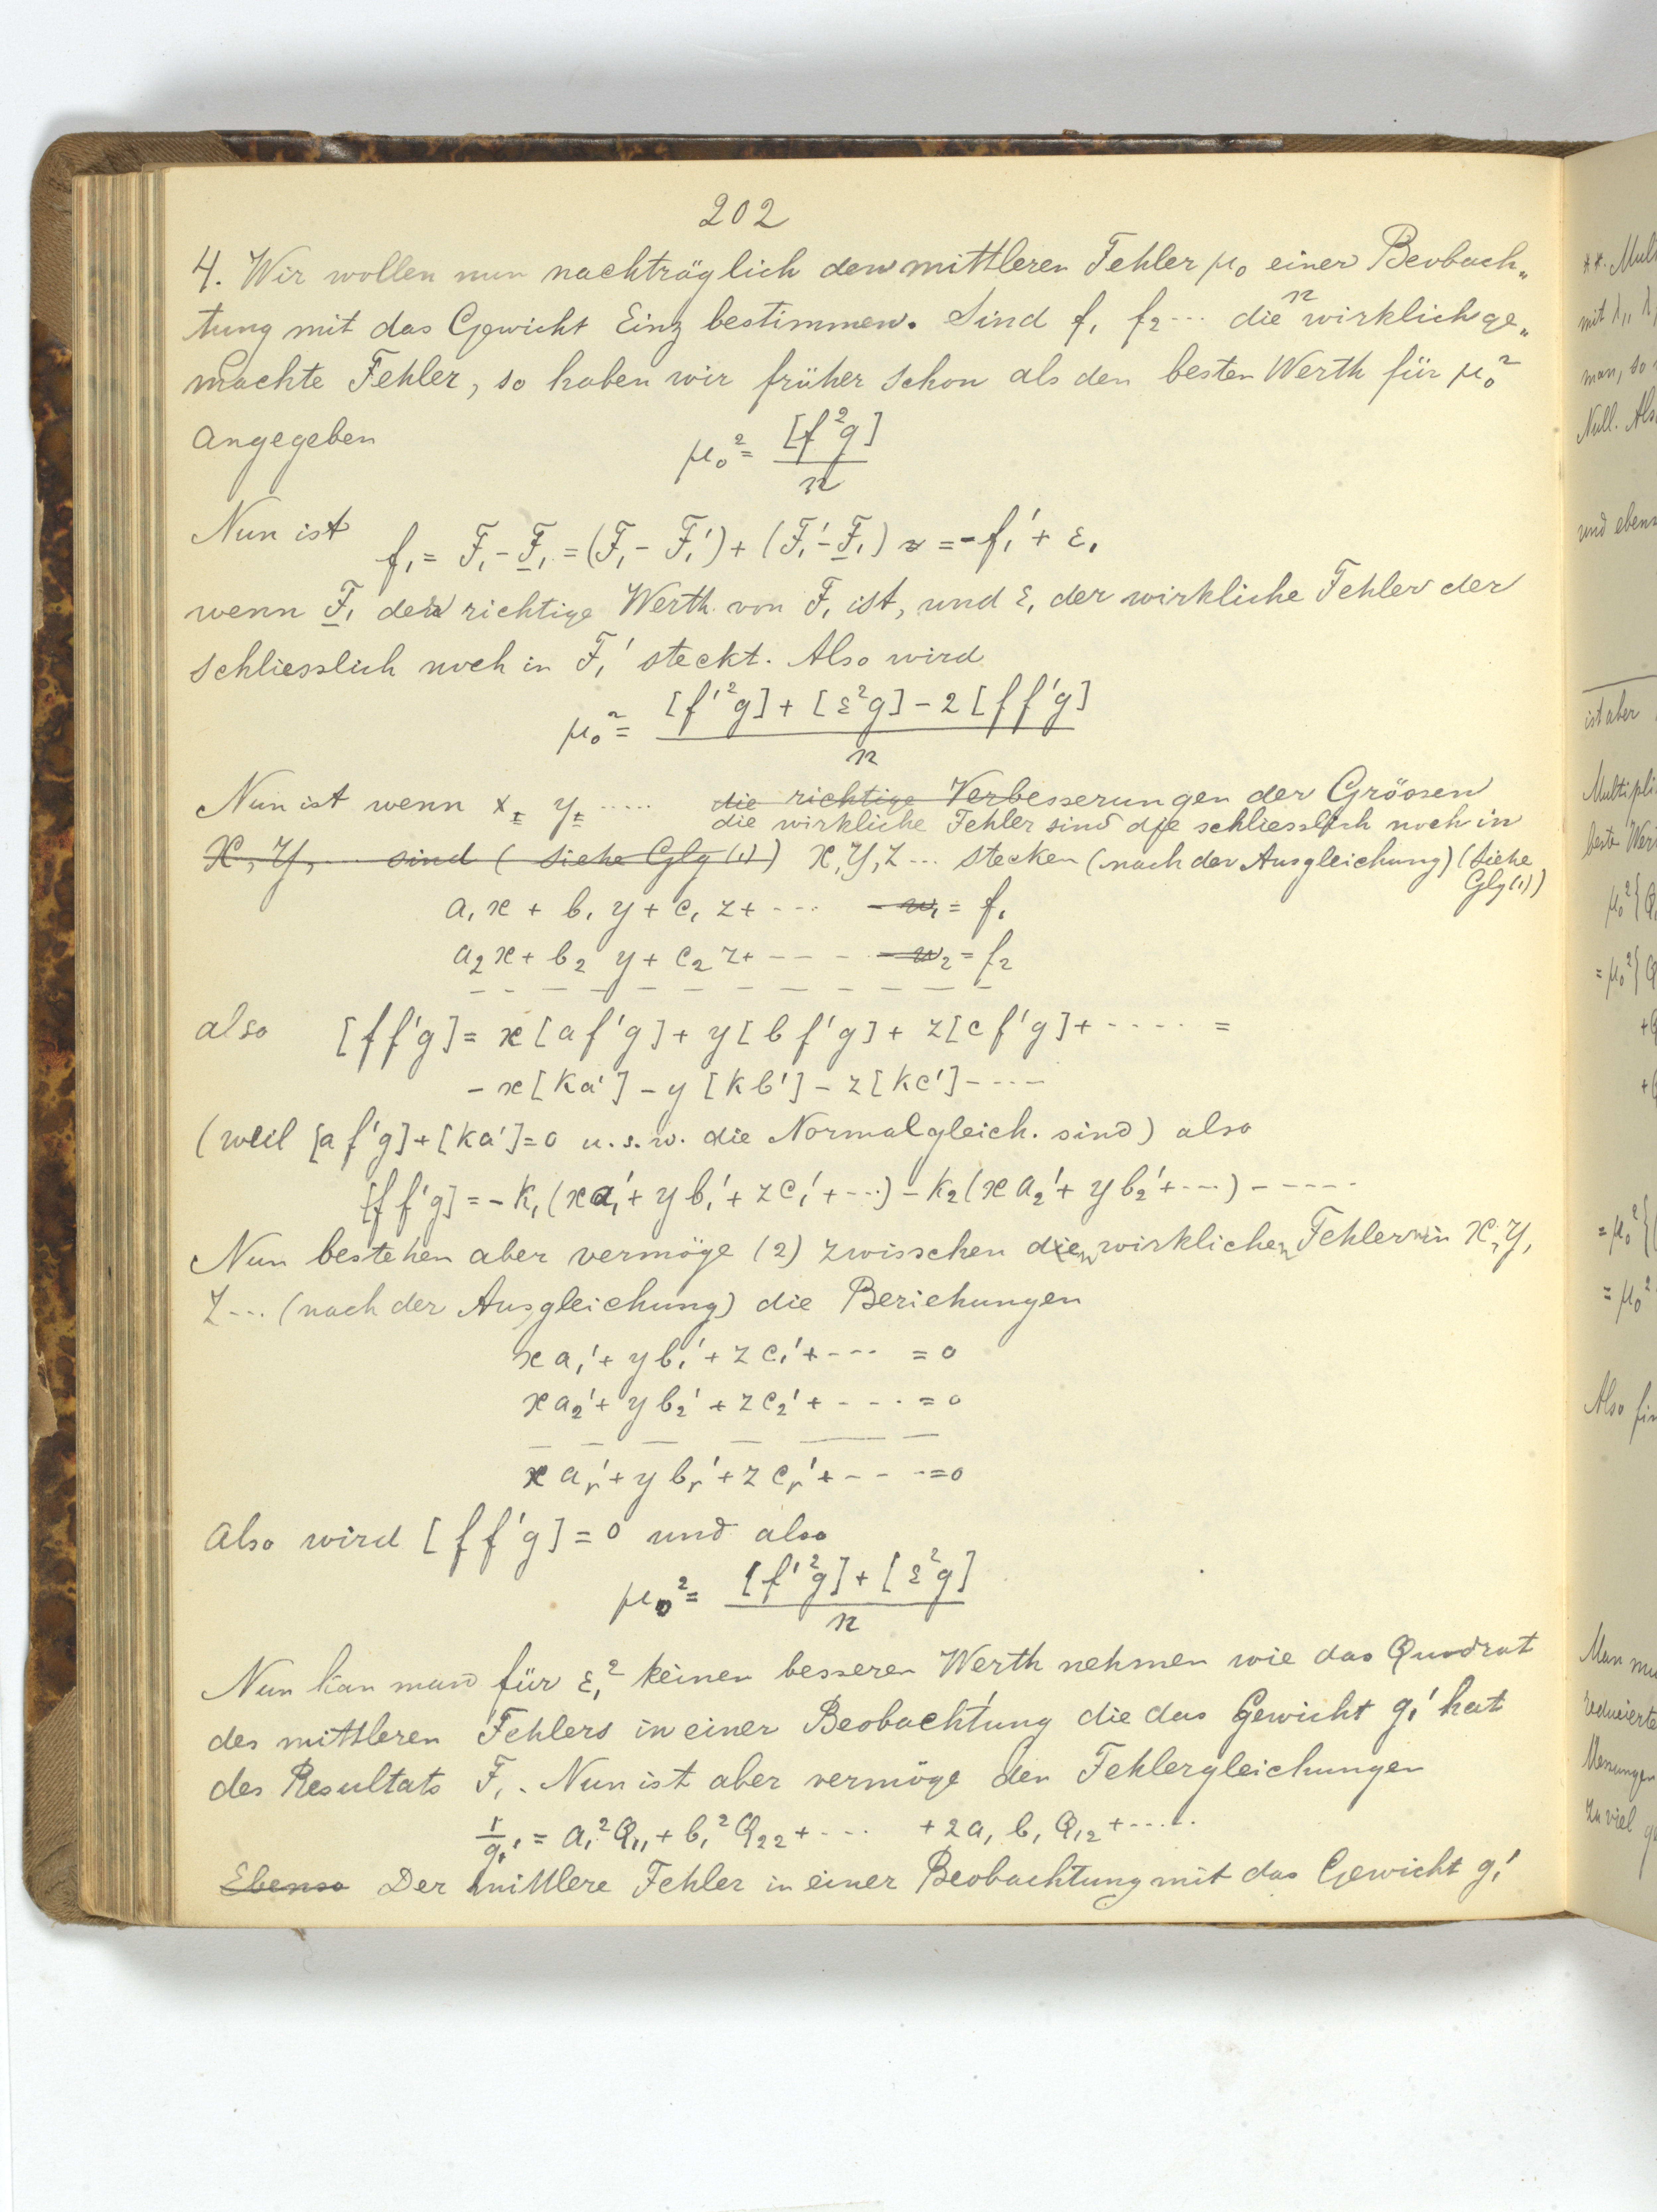 202
4. Wir wollen nun nachträglich den mittleren Fehler μ₀ einer Beobach„
tung mit das Gewicht Einz bestimmen. Sind f₁ f₂ ... die n wirklich ge„
machte Fehler, so haben wir früher schon als den besten Werth für μ₀²
angegeben μ₀² = [f²g] / n
Nun ist f₁ = F₁ - F̲₁ = (F₁ - F₁') + (F₁' - F̲₁) = -f₁' + ε₁
wenn F̲₁ der richtige Werth von F₁ ist, und ε₁ der wirkliche Fehler der
schliesslich noch in F₁' steckt. Also wird
μ₀² = ([f'²g] + [ε²g] - 2[ff'g]) / n
Nun ist wenn x y ..... die richtige Verbesserungen der Grössen
die wirkliche Fehler sind die schliesslich noch in
X, Y, ... sind (siehe Glg (1)) X, Y, Z ... stecken (nach der Ausgleichung) (siehe
Glg (1))
a₁x + b₁y + c₁z + ... - w₁ = f₁
a₂x + b₂y + c₂z + - - - - w₂ = f₂
also [ff'g] = x[af'g] + y[bf'g] + z[cf'g] + ..... =
- x[ka'] - y[kb'] - z[kc'] - ...
(weil [af'g] + [ka'] = 0 u.s.w. die Normalgleich. sind) also
[ff'g] = -k₁(xa₁' + yb₁' + zc₁' + ...) - k₂(xa₂' + yb₂' + ...) - -----
Nun bestehen aber vermöge (2) zwisschen den wirklichen Fehlern in X, Y,
Z ... (nach der Ausgleichung) die Beziehungen
xa₁' + yb₁' + zc₁' + ... = 0
xa₂' + yb₂' + zc₂' + ... = 0
xaᵣ' + ybᵣ' + zcᵣ' + - - - = 0
Also wird [ff'g] = 0 und also
μ₀² = ([f'²g] + [ε²g]) / n
Nun kan man für ε₁² keinen besseren Werth nehmen wie das Quadrat
des mittleren Fehlers in einer Beobachtung die das Gewicht g₁' hat
des Resultats F₁. Nun ist aber vermöge den Fehlergleichungen
1/g₁' = a₁²Q₁₁ + b₁²Q₂₂ + ... + 2a₁b₁Q₁₂ + .....
Ebenso Der mittlere Fehler in einer Beobachtung mit das Gewicht g₁'
mit λ₁, λ
man, so
Null. Als
und ebens
ist aber
Multipli
beste Wer
Also fin
Man mu
reducierte
Messungen
zu viel